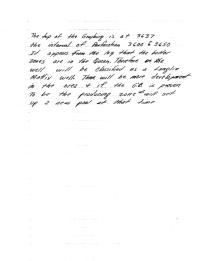 The top of the Grayburg is at 3637
the interval of Perforation 3600 to 3650
It appears from the log that the better
zones are in the Queen. Therefore the
well will be classified as a Langlie
Mattix well. There will be more development
in the area & if the GB is proven
to be the producing zone will set
up a new pool at that time